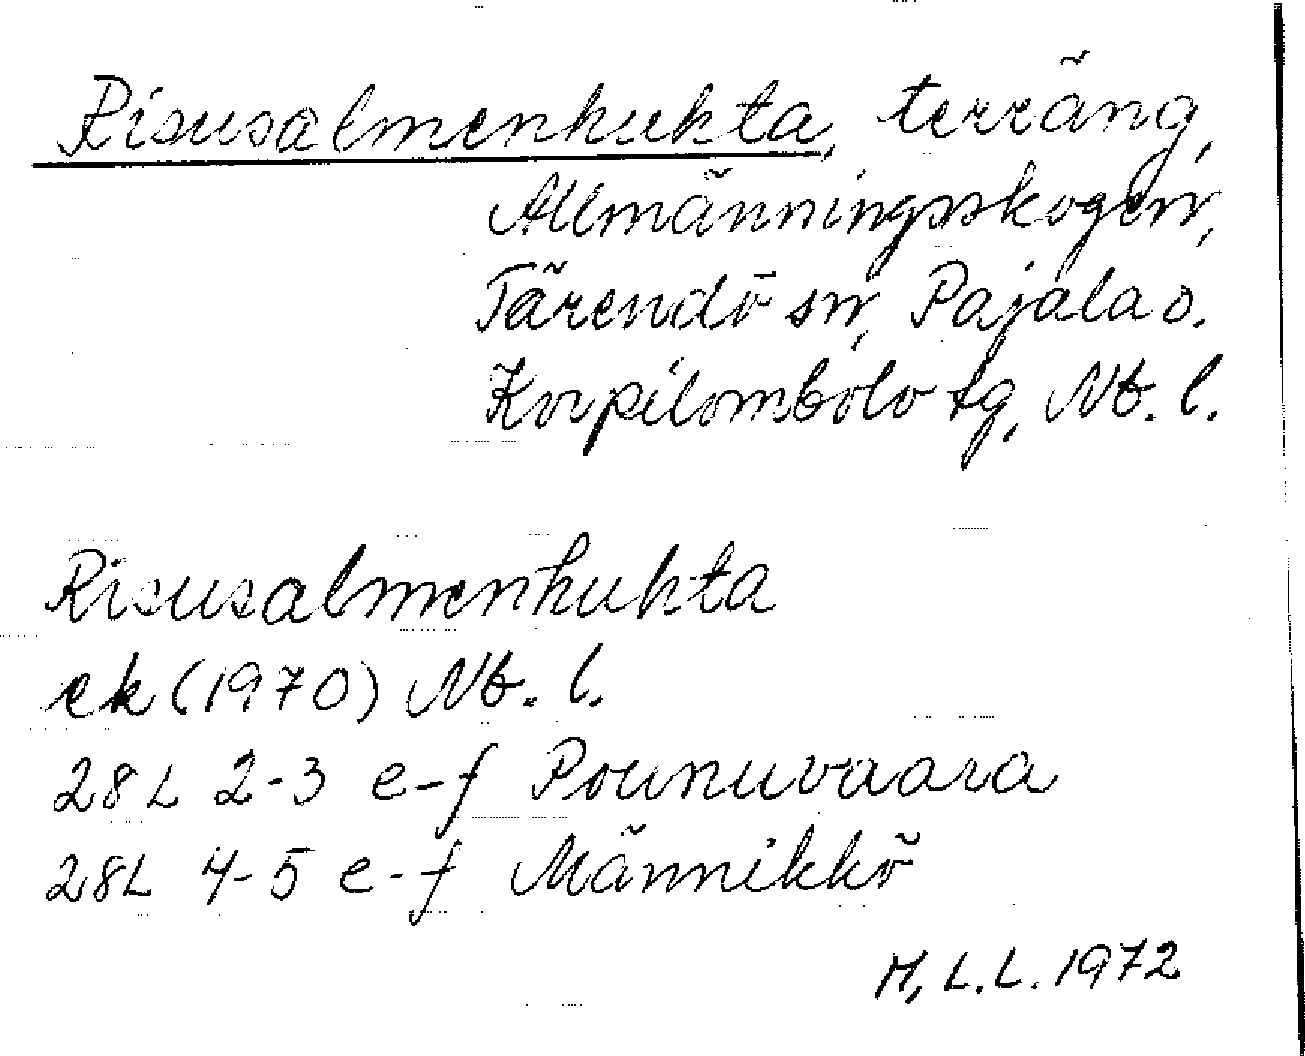 Risusalmenhukta, terräng,
Allmänningsskogen,
Tärendö sn, Pajala o.
Korpilombolo tg, Nb. l.
Risusalmenhukta
ek (1970) Nb. l.
28L 2-3 e-f Pounuvaara
28L 4-5 e-f Männikkö
M, L.L. 1972